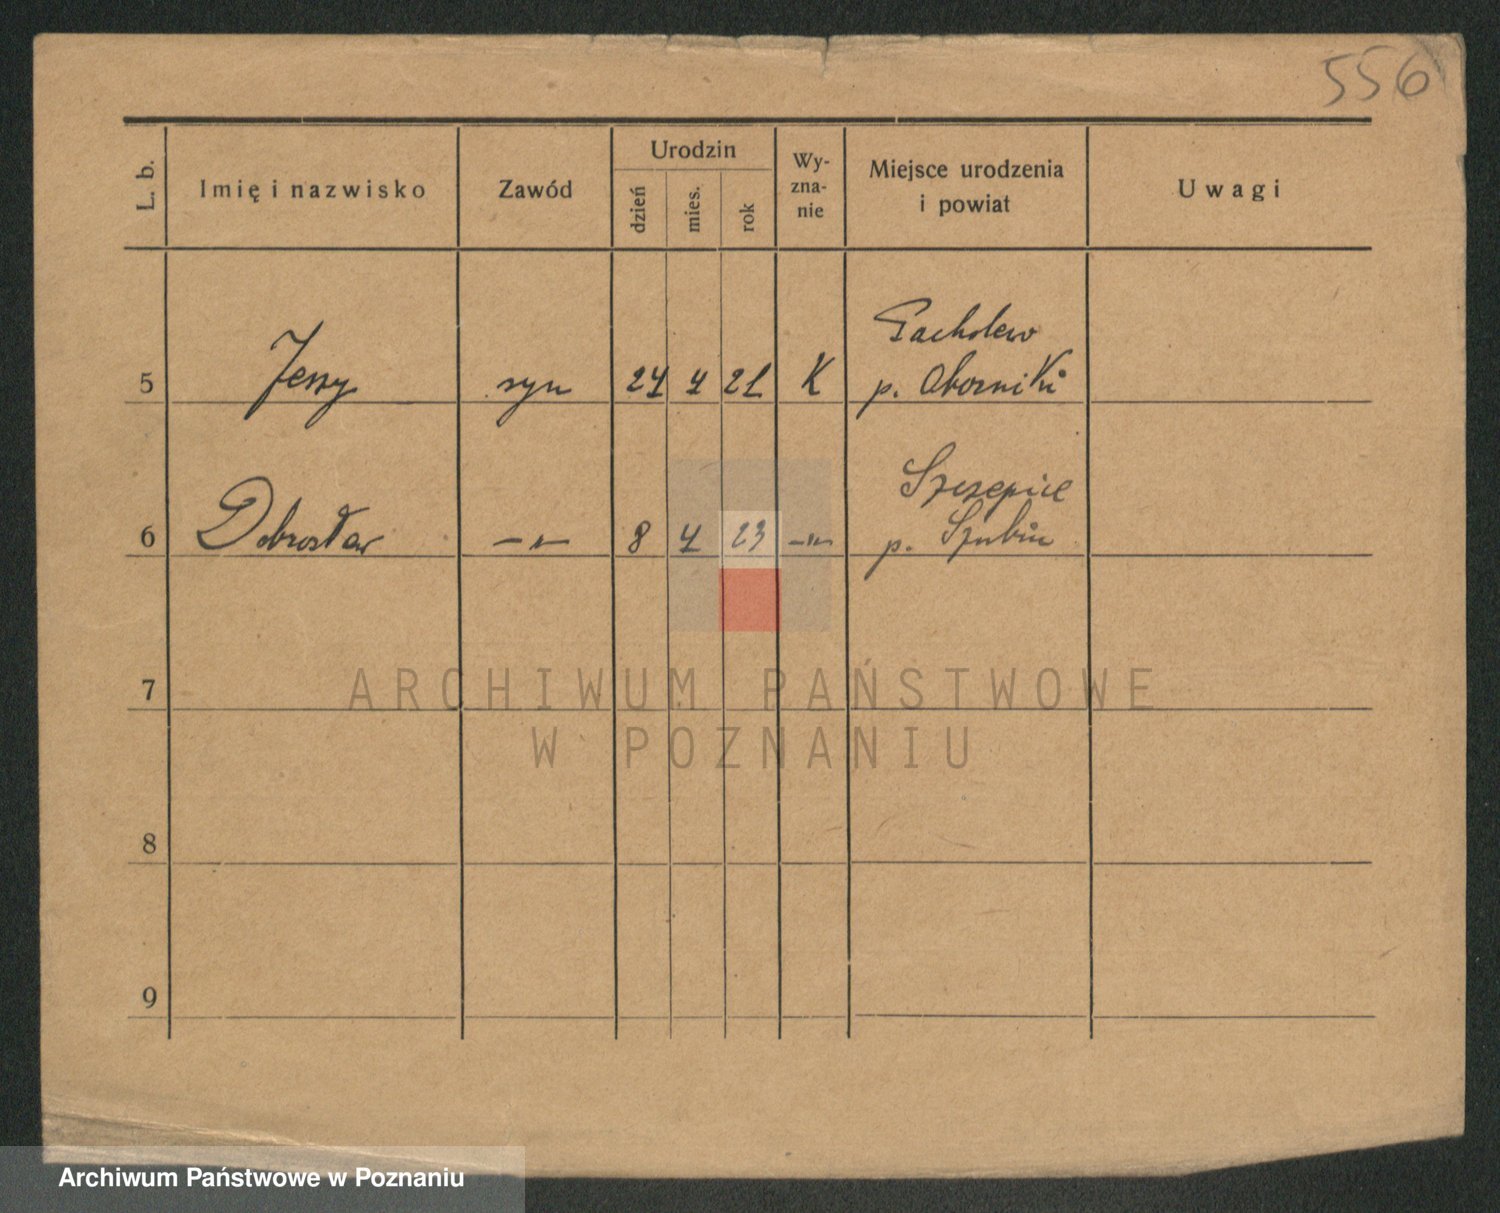 556
L. b.
Imię i nazwisko
Zawód
Urodzin
dzień
mies.
rok
Wy-
zna-
nie
Miejsce urodzenia
i powiat
Uwagi
5 Jerzy syn 24 4 21 K
p. Oborniki
6 Dobrosław —„— 8 4 23 —„—
Szczepice
p. Szubin
7
8
9
ARCHIWUM PAŃSTWOWE
W POZNANIU
Archiwum Państwowe w Poznaniu